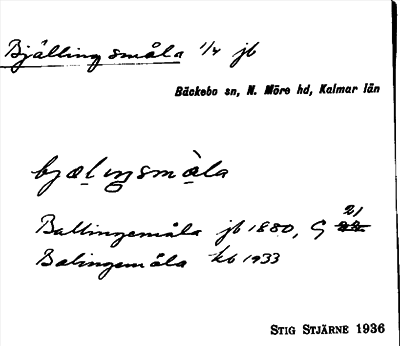 Bjällingsmåla 1/4 jb
Bäckebo sn, N. Möre hd, Kalmar län
bjælıŋsmåla
Ballingemåla jb 1880, G 21
Balingemåla kb 1933
STIG STJÄRNE 1936